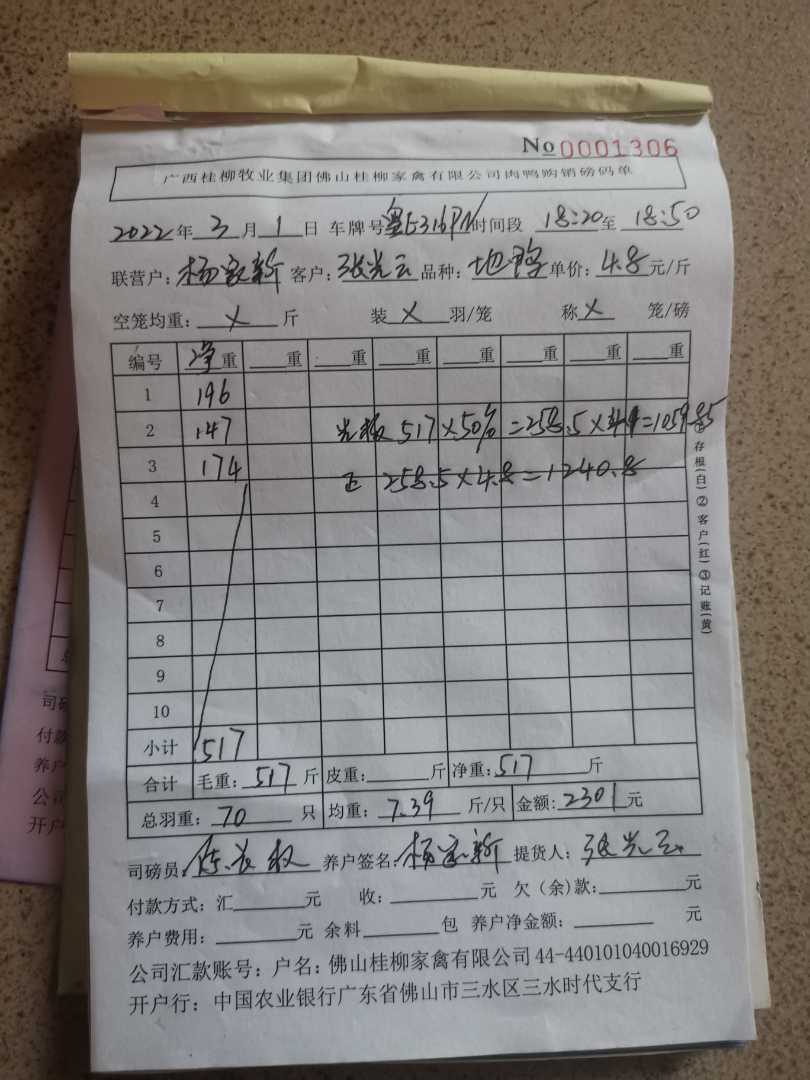 No 0001306
广西桂柳牧业集团佛山桂柳家禽有限公司肉鸭购销磅码单
2022年3月1日 车牌号粤E316PN 时间段 18:20至18:50
联营户:杨家新 客户:张光云 品种:地鸭 单价:4.8元/斤
空笼均重:X斤 装X羽/笼 称X笼/磅
编号 净重 重 重 重 重 重 重 重
1 196
2 147 光板 517×50%=258.5×4.1=1059.85
3 174 正 258.5×4.8=1240.8
4
5
6
7
8
9
10
小计 517
合计 毛重:517斤 皮重: 斤 净重:517斤
总羽重:70只 均重:7.39斤/只 金额:2301元
司磅员: 养户签名:杨家新 提货人:张光云
付款方式:汇 元 收: 元 欠(余)款: 元
养户费用: 元 余料 包 养户净金额: 元
公司汇款账号:户名:佛山桂柳家禽有限公司44-440101040016929
开户行:中国农业银行广东省佛山市三水区三水时代支行
存根(白)②客户(红)③记账(黄)
司磅
付款
养户
公司
开户